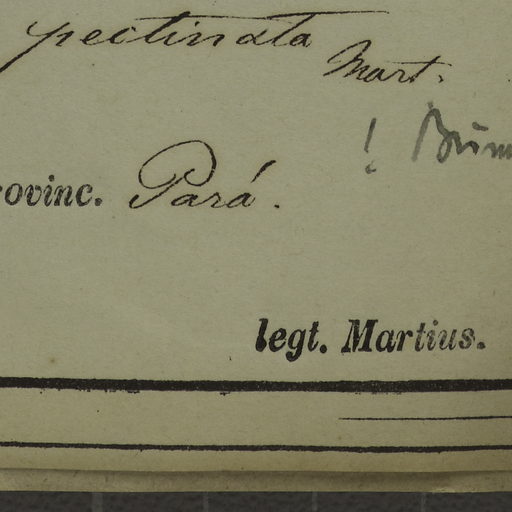 pectinata Mart.
!
rovinc. Pará.
legt. Martius.